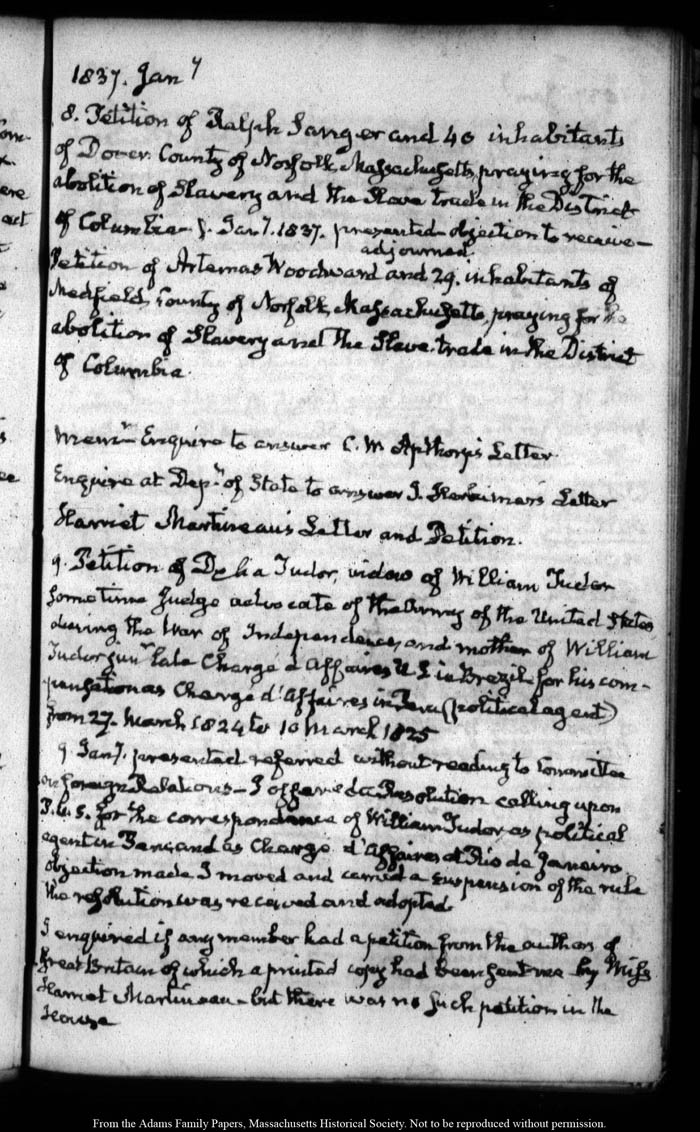 1837. Jan y
8. Petition of Ralph Sanger and 40 inhabitants
of Dover County of Norfolk Massachusetts, praying for the
abolition of Slavery and the Slave trade in the District
of Columbia - 9. Jany. 1837. presented - objection to receive -
adjourned.
Petition of Artemas Woodward and 29. inhabitants of
Medfield, County of Norfolk, Massachusetts, praying for the
abolition of Slavery and the Slave-trade in the District
of Columbia.
Mem.m Enquire to answer C. M Apthorp's Letter
Enquire at Dep.t of State to answer J. Letter
Harriet Martineau's Letter and Petition.
9. Petition of Delia Tudor, widow of William Tudor
sometime Judge advocate of the Army of the United States
during the War of Independence, and mother of William
Tudor jun.r late Chargé d'Affaires U. S. in Brazil for his com-
pensation as Chargé d'Affaires in Peru (political agent)
from 27. March 1824 to 10 March 1825
9 Jan.y. presented referred without reading to Committee
on foreign Relations - I offered a Resolution calling upon
P. U. S. for the correspondence of William Tudor as political
agent in Peru, and as Chargé d'Affaires at Rio de Janeiro
objection made. I moved and carried a suspension of the rule
the resolution was received and adopted.
I enquired if any member had a petition from the authors of
Great Britain of which a printed copy had been sent me by Miss
Harriet Martineau - but there was no such petition in the
House
From the Adams Family Papers, Massachusetts Historical Society. Not to be reproduced without permission.